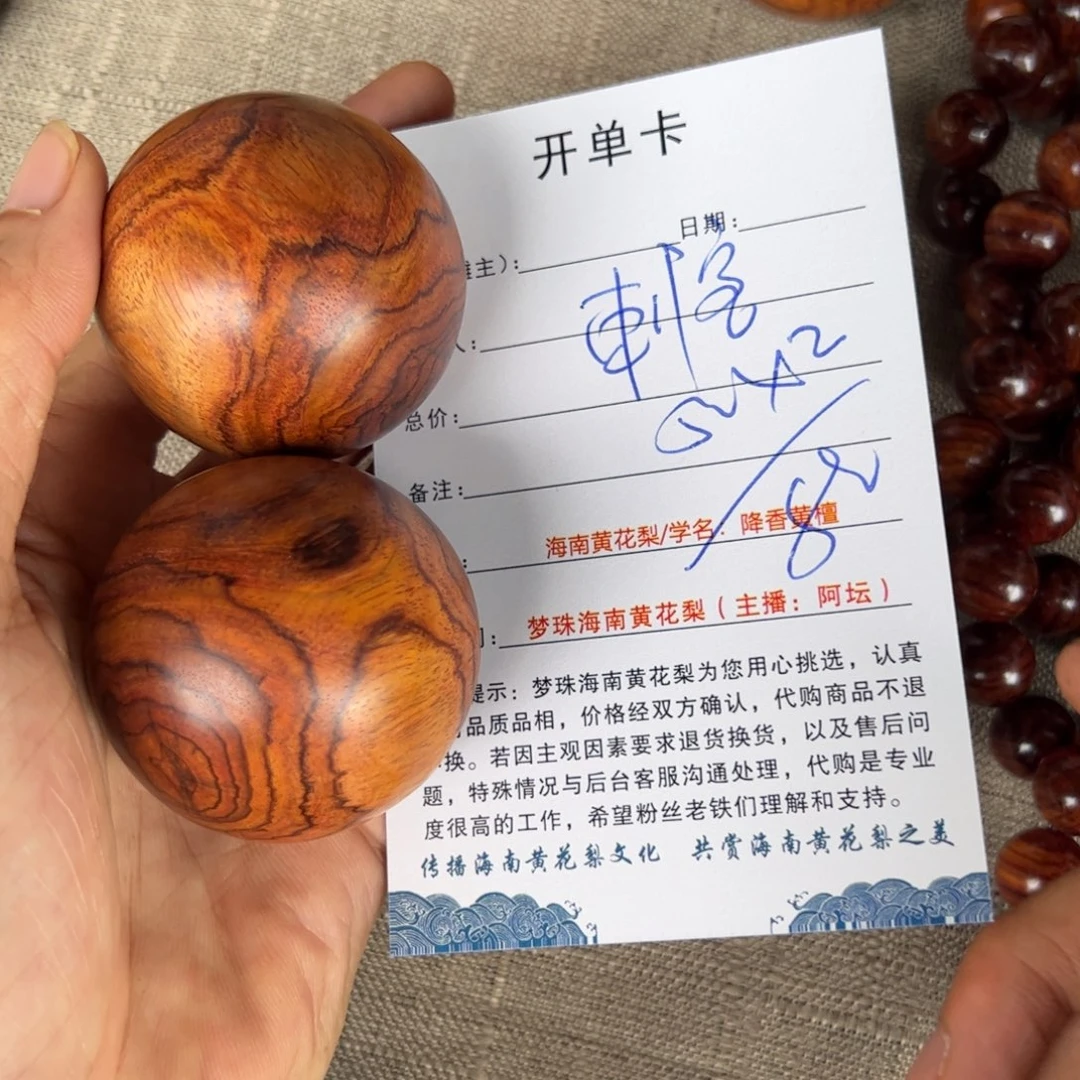 开单卡
日期:
主):
刺客
总价:
备注:
海南黄花梨/学名: 降香黄檀
梦珠海南黄花梨 ( 主播: 阿坛 )
提示: 梦珠海南黄花梨为您用心挑选, 认真
品质品相, 价格经双方确认, 代购商品不退
换。若因主观因素要求退货换货, 以及售后问
题, 特殊情况与后台客服沟通处理, 代购是专业
度很高的工作, 希望粉丝老铁们理解和支持。
传播海南黄花梨文化 共赏海南黄花梨之美